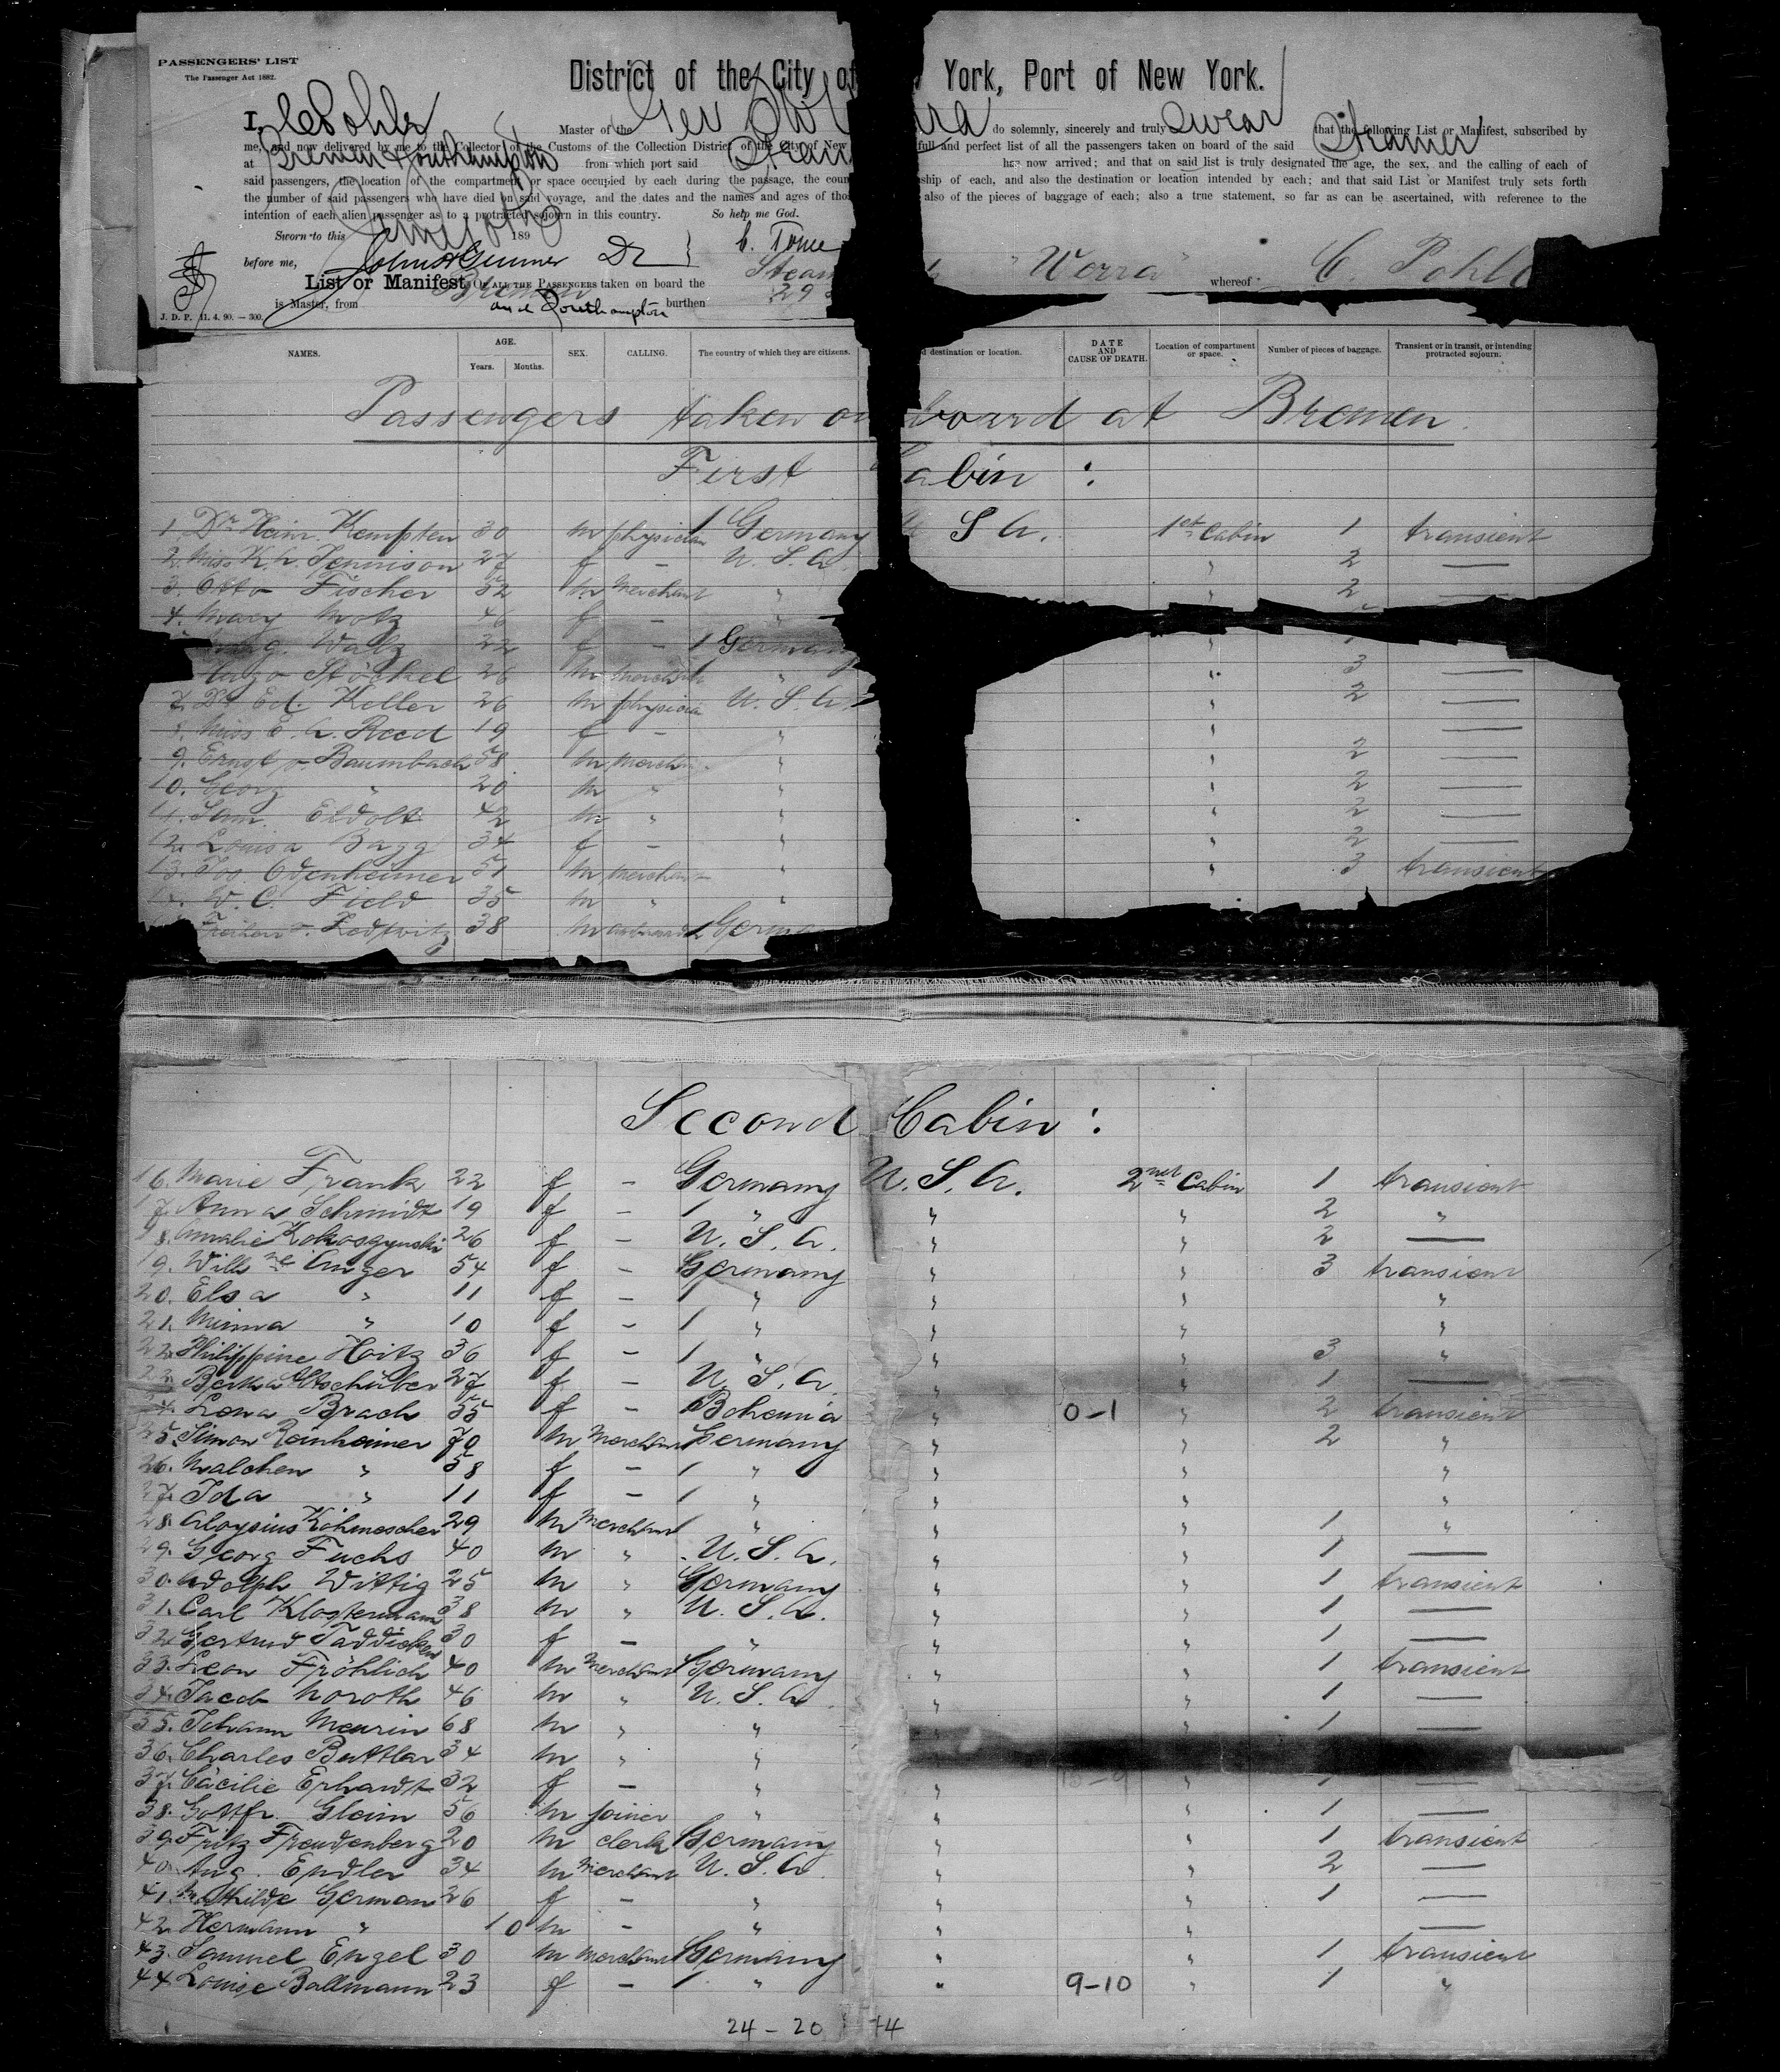 PASSENGERS' LIST
The Passenger Act 1882.
District of the City of York, Port of New York.
I, C. Pohle Master of the Ger do solemnly, sincerely and truly swear that the following List or Manifest, subscribed by
me, and now delivered by me to the Collector of the Customs of the Collection District of the City of New full and perfect list of all the passengers taken on board of the said Steamer
at Bremen Southampton from which port said has now arrived; and that on said list is truly designated the age, the sex, and the calling of each of
said passengers, the location of the compartment or space occupied by each during the passage, the coun ship of each, and also the destination or location intended by each; and that said List or Manifest truly sets forth
the number of said passengers who have died on said voyage, and the dates and the names and ages of tho also of the pieces of baggage of each; also a true statement, so far as can be ascertained, with reference to the
intention of each alien passenger as to a protracted sojourn in this country. So help me God.
Sworn to this 189
before me,
List or Manifest, OF ALL THE PASSENGERS taken on board the Steam "Werra" whereof C. Pohle
is Master, from Bremen and Southampton burthen 29
J. D. P. 11. 4. 90. — 300.
NAMES. AGE. Years. Months. SEX. CALLING. The country of which they are citizens. d destination or location. DATE AND CAUSE OF DEATH. Location of compartment or space. Number of pieces of baggage. Transient or in transit, or intending protracted sojourn.
Passengers taken on board at Bremen.
First abin :
1. Dr Heinr. Kempten 30 m physician 1 Germany S A. 1st Cabin 1 transient
2. Miss K. A. Jennison 27 f – U. S. A. " 2 —
3. Otto Fischer 52 m Merchant " " 2 —
4. Mary Motz 46 f – "
Walz 22 f – 1 German
Hugo Stöckel 26 m Merchant " " 3 —
7. Dr Ed. Keller 26 m physician U. S. A. " 2 —
8. Miss E. A. Reed 19 f – " " —
9. Ernst v. Baumbach 58 m Merchant " " 2 —
10. Georg " 20 m " " " 2 —
11. Sam. Eldolt 42 m " " " 2 —
12. Louisa Bagg 34 f – " " 2 —
13. Jos. Odenheimer 51 m Merchant " " 3 transient
14. W. C. Field 35 m " "
v. Ledtwitz 38 m 1 Germa
Second Cabin :
16. Marie Frank 22 f – Germany U. S. A. 2nd Cabin 1 transient
17. Anna Schmidt 19 f – 1 " " " 2 "
18. Amalie Kokosgynski 26 f – U. S. A. " " 2 —
19. Wilhne Unger 54 f – Germany " " 3 transient
20. Elsa " 11 f – 1 " " " "
21. Minna " 10 f – 1 " " " "
22. Philippine Hoitz 36 f – 1 " " " 3 "
23. Bertha Altschüber 27 f – U. S. A. " " 1 —
24. Lena Brach 55 f – Bohemia " 0-1 " 2 transient
25. Simon Reinheimer 70 m Merchant Germany " " 2 "
26. Malchen " 58 f – 1 " " " "
27. Ida " 11 f – 1 " " " "
28. Aloysius Köhmescher 29 m Merchant 1 " " " 1 "
29. Georg Fuchs 40 m " U. S. A. " " 1 —
30. Adolph Wittig 25 m " Germany " " 1 transient
31. Carl Klostermann 38 m " U. S. A. " " 1 —
32. Gertrud Taddicken 30 f – " " " 1 —
33. Leon Fröhlich 40 m Merchant Germany " " 1 transient
34. Jacob Noroth 46 m " U. S. A. " " 1 —
35. Johann Meurin 68 m " " " " 1 —
36. Charles Buttlar 34 m " "
37. Cäcilie Erhardt 32 f – " " " 1 —
38. Gottfr. Gleim 56 m joiner " " " 1 —
39. Fritz Freudenberg 20 m clerk Germany " " 1 transient
40. Aug. Endler 34 m Merchant U. S. A. " " 2 —
41. Mathilde German 26 f – " " " 1 —
42. Hermann " 10 m – " " " —
43. Samuel Engel 30 m Merchant Germany " " 1 transient
44. Louise Ballmann 23 f – 1 " " 9-10 " 1 "
24 – 20 44